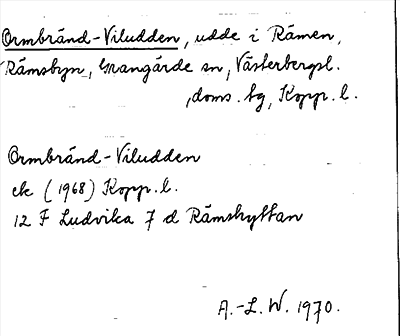 Ormbränd-Viludden, udde i Rämen,
Rämsbyn, Grangärde sn, Västerbergsl.
,doms. tg, Kopp. l.
Ormbränd-Viludden
ek (1968) Kopp. l.
12 F Ludvika 7 d Rämshyttan
A.-L. W. 1970.